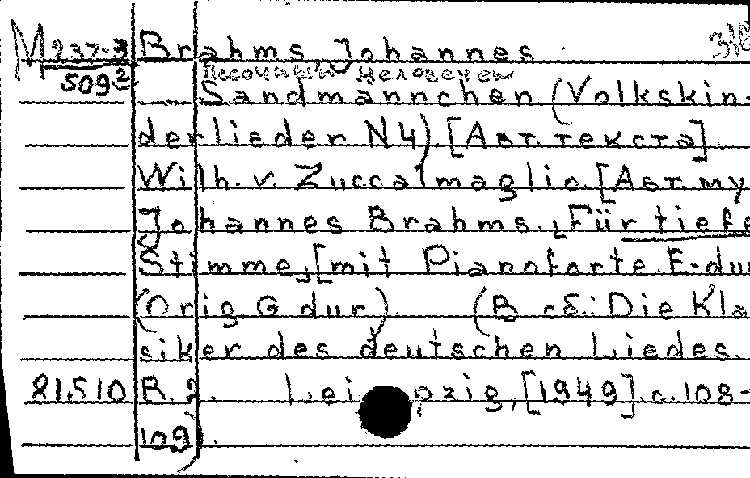 M 237-3 Brahms, Johannes
509² Песочный человечек
Sandmännchen (Volkskin-
derlieder N 4). [Авт. текста]
Wilh. v. Zuccalmaglio. [Авт. му
Johannes Brahms. Für tiefe
Stimme, [mit Pianoforte E-du
(Orig G dur) (В сб.: Die Kla
siker des deutschen Liedes.
81.510 B. 2. Leipzig, [1949]. с. 108-
109).